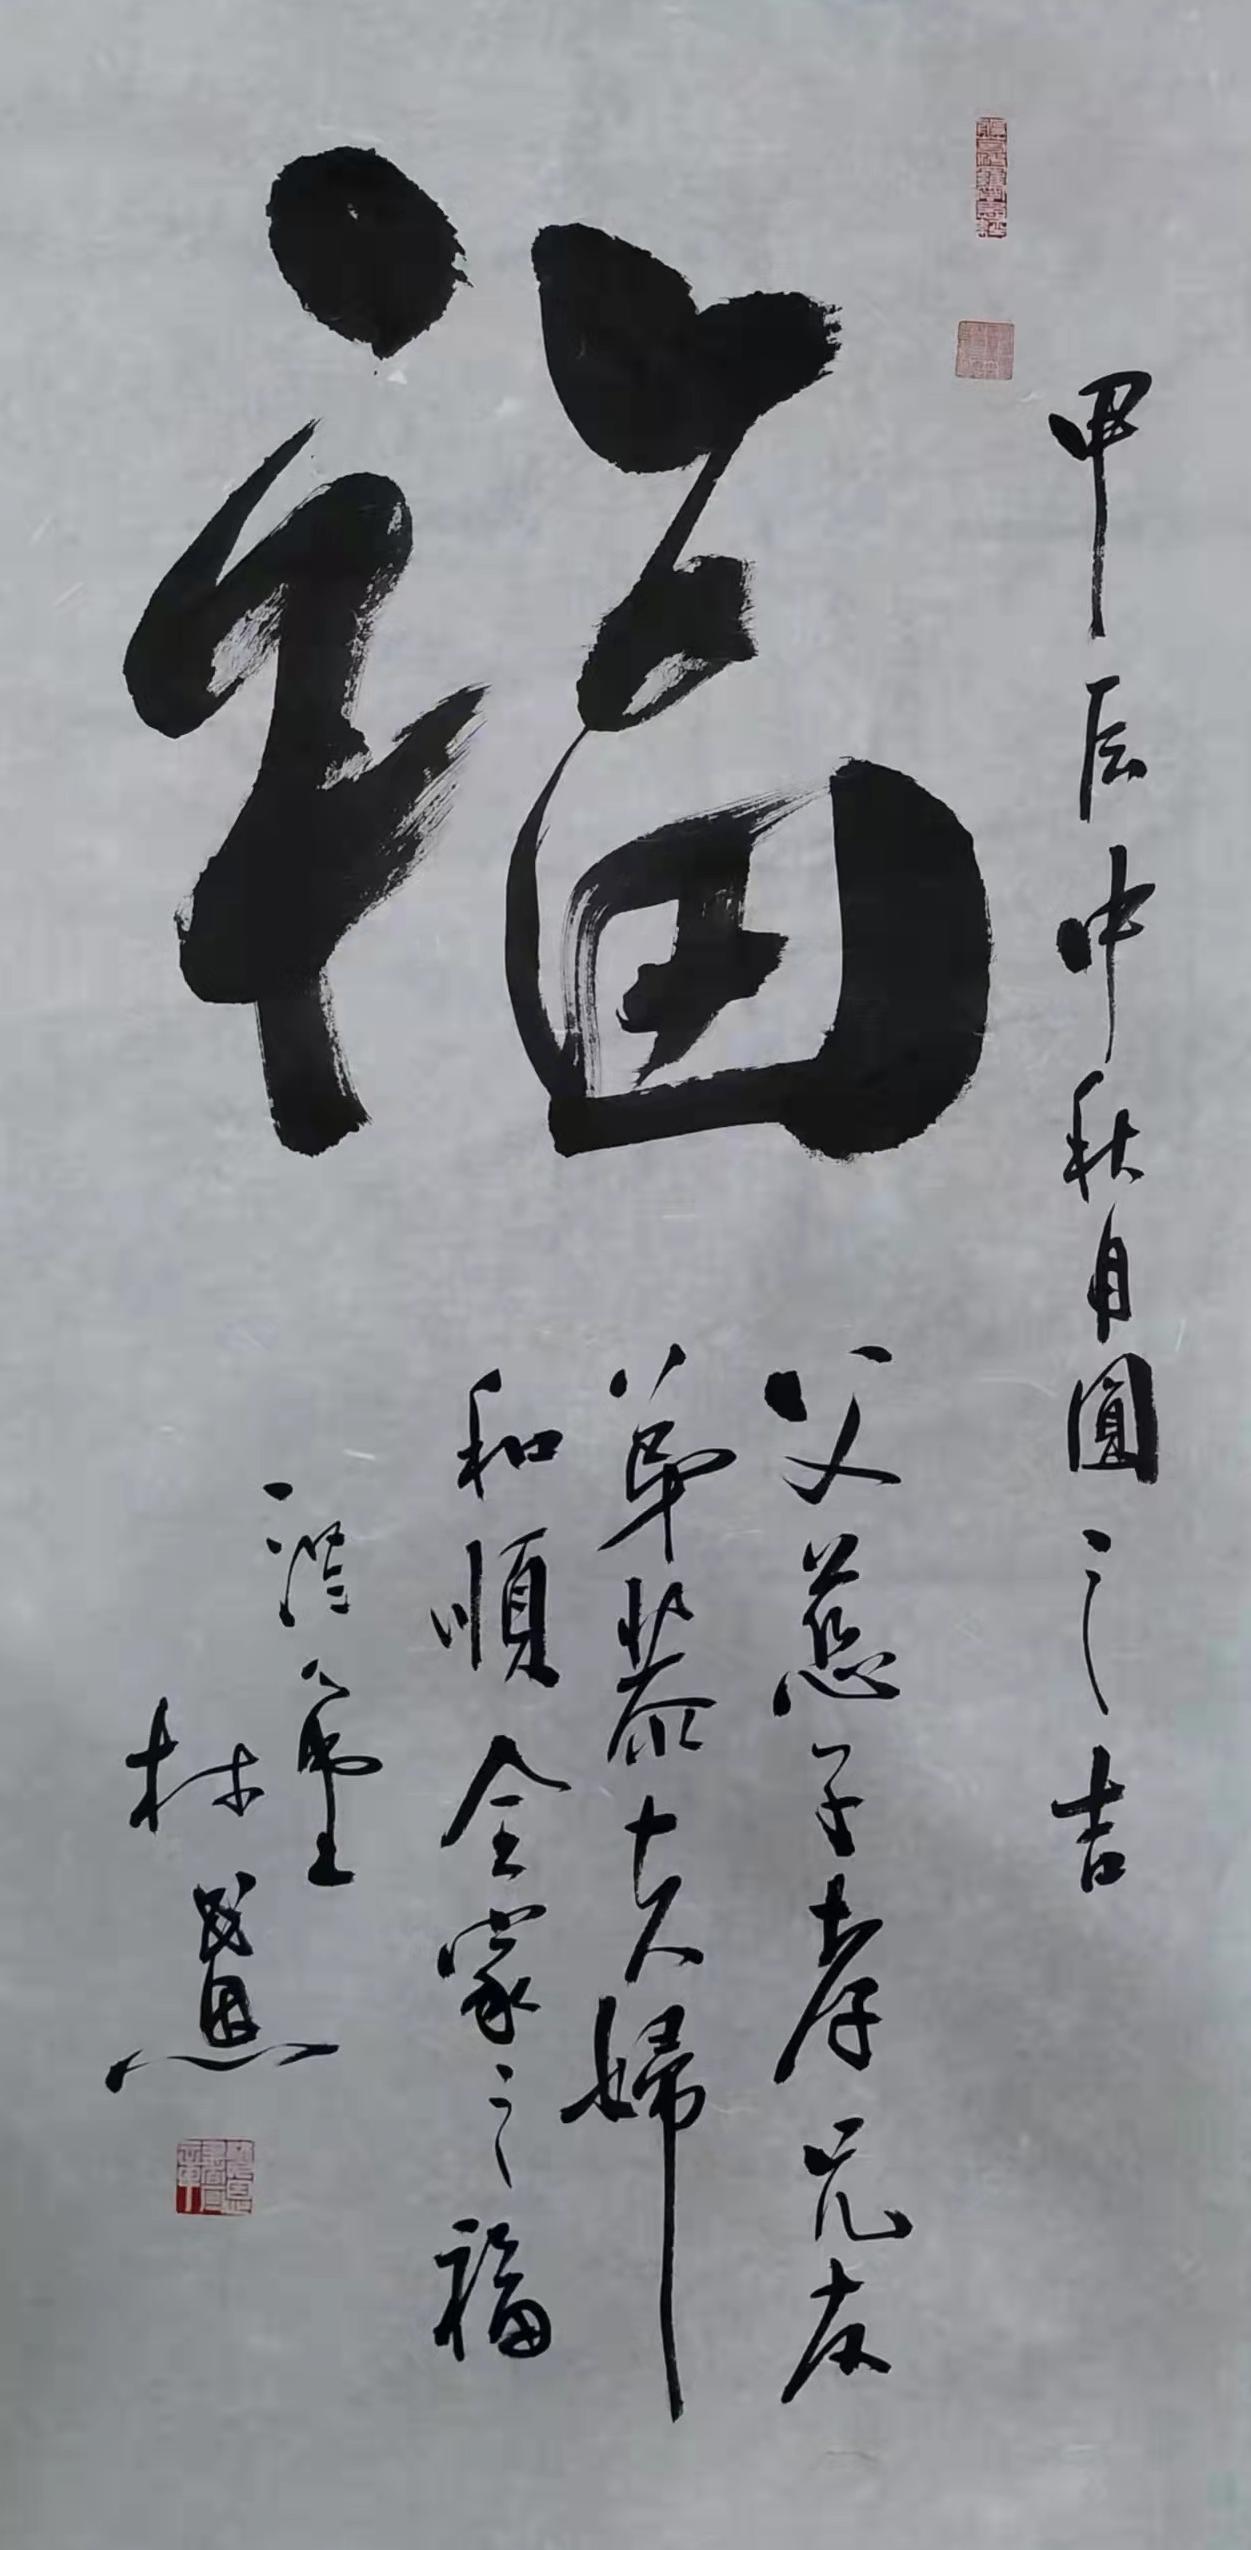 甲辰中秋月圓之吉
福
父慈子孝兄友
弟恭夫婦
和順全家之福
林